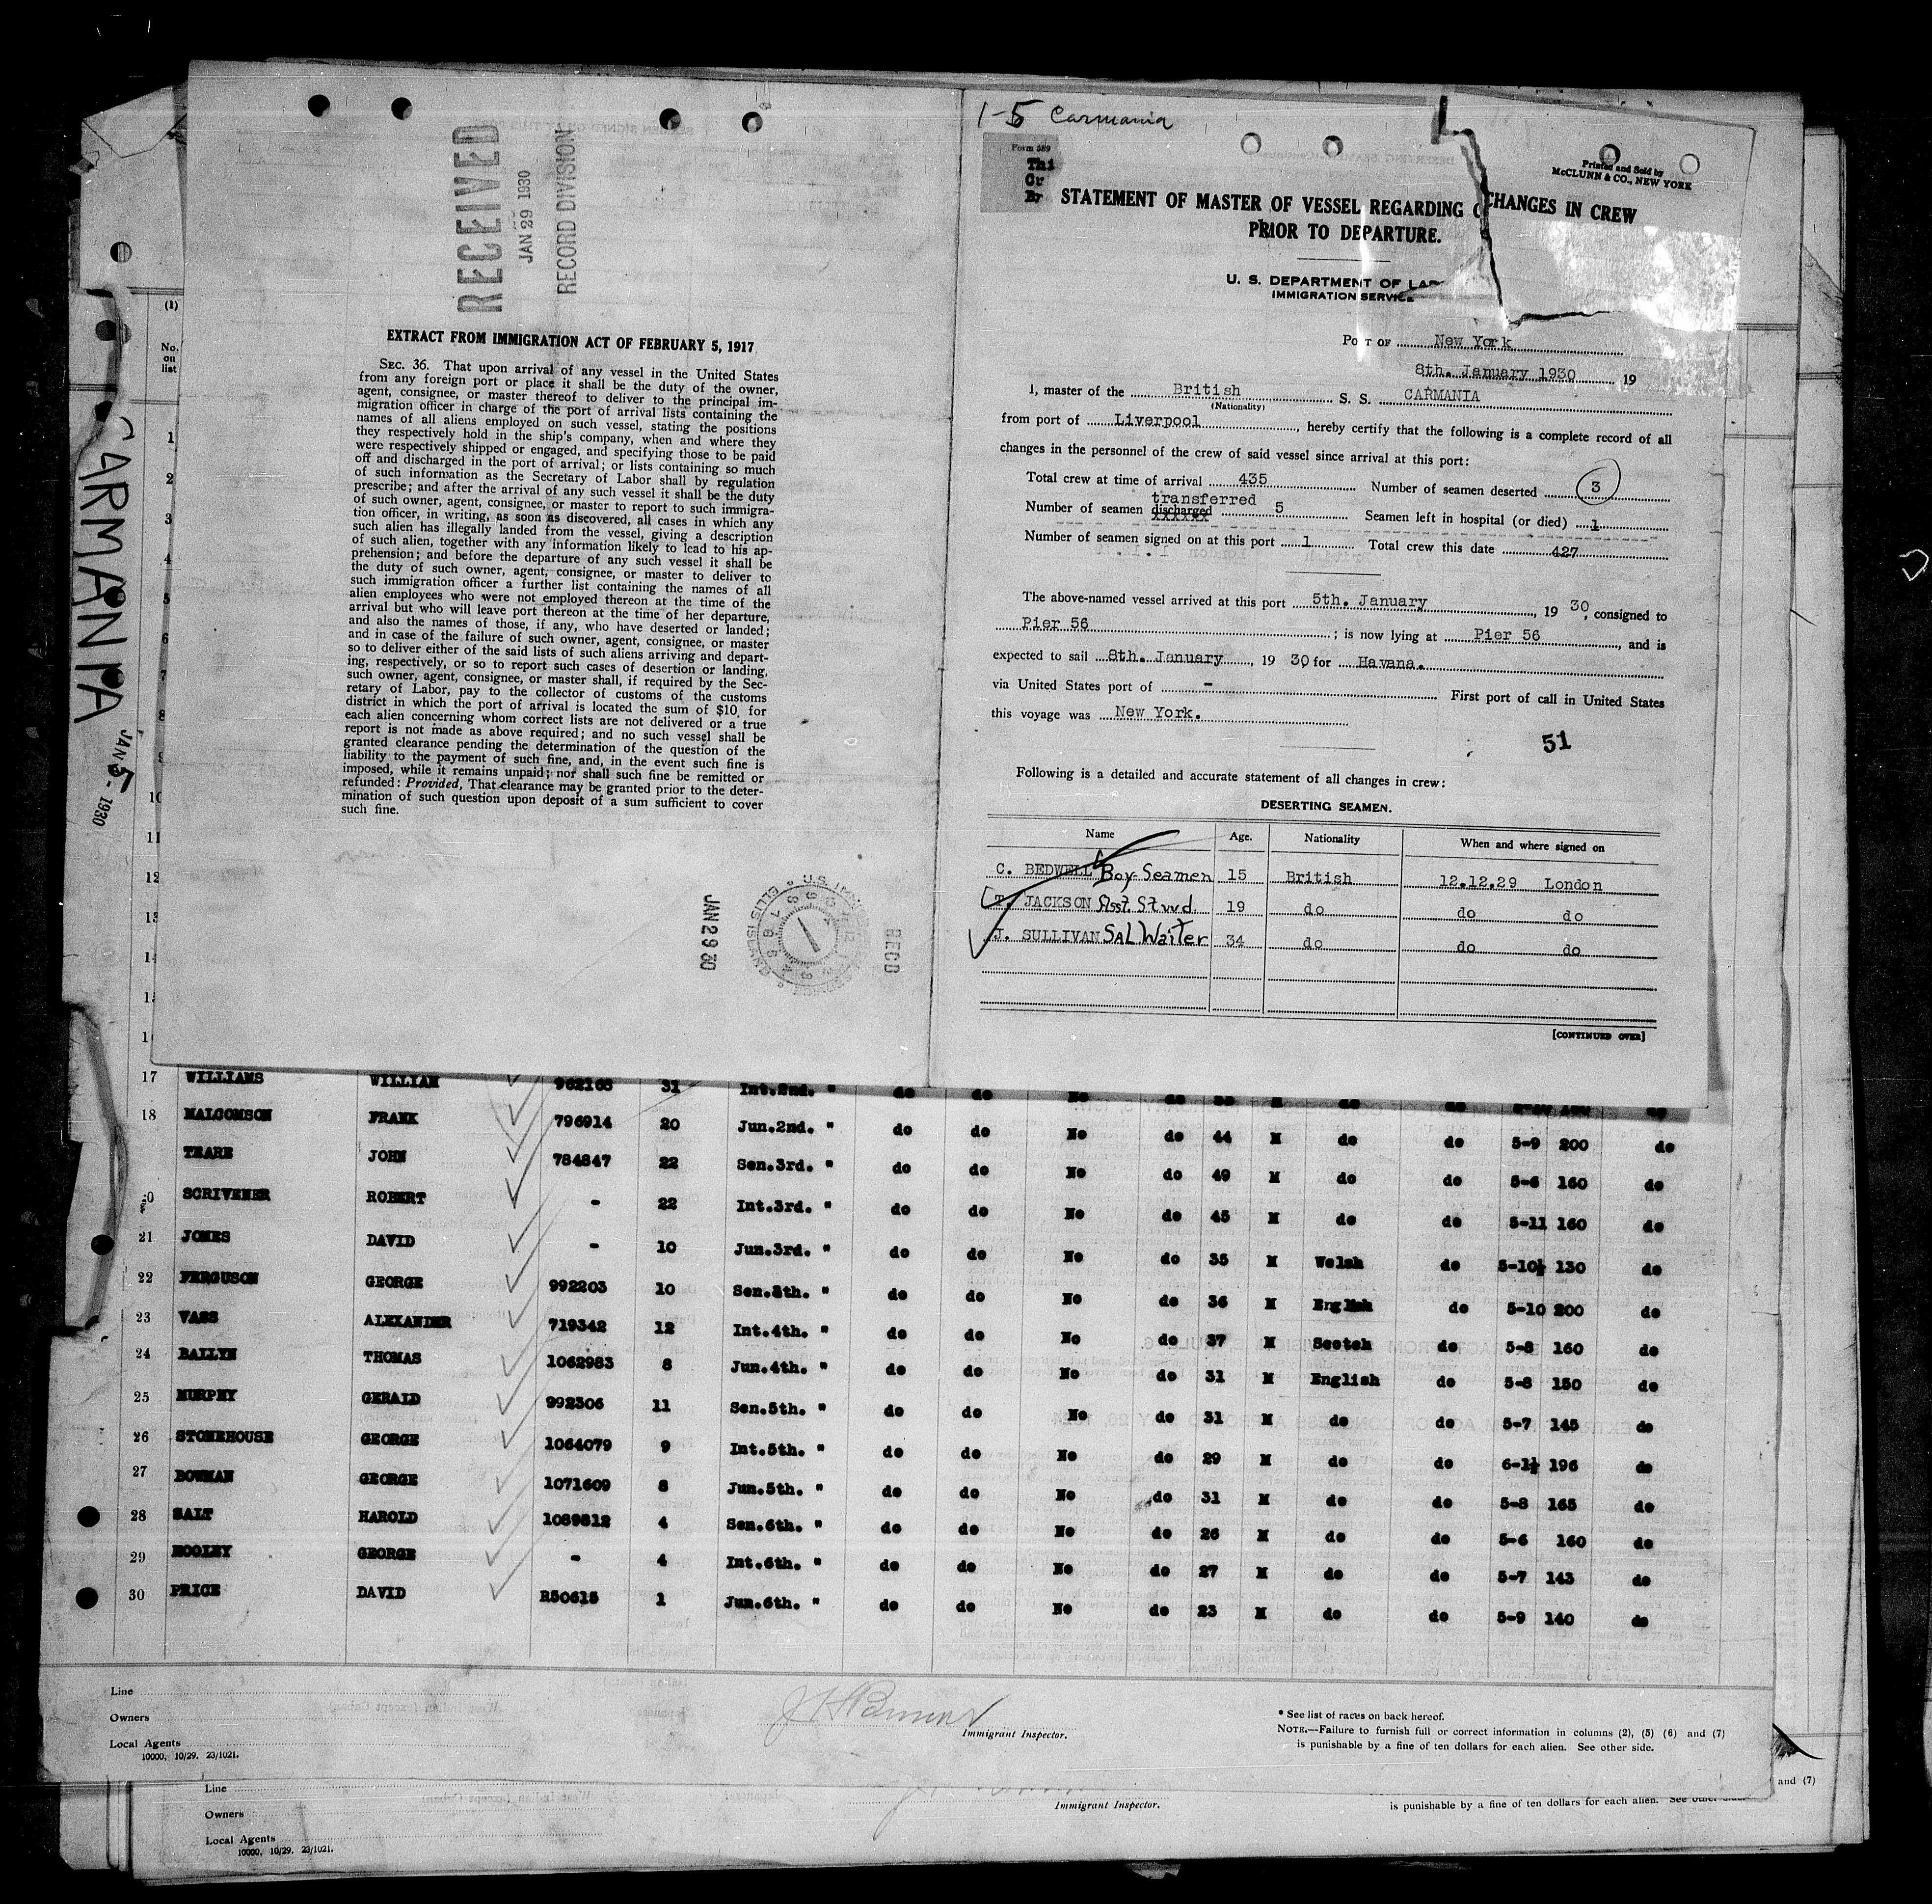 RECEIVED
JAN 29 1930
RECORD DIVISION
EXTRACT FROM IMMIGRATION ACT OF FEBRUARY 5, 1917
SEC. 36. That upon arrival of any vessel in the United States
from any foreign port or place it shall be the duty of the owner,
agent, consignee, or master thereof to deliver to the principal im-
migration officer in charge of the port of arrival lists containing the
names of all aliens employed on such vessel, stating the positions
they respectively hold in the ship's company, when and where they
were respectively shipped or engaged, and specifying those to be paid
off and discharged in the port of arrival; or lists containing so much
of such information as the Secretary of Labor shall by regulation
prescribe; and after the arrival of any such vessel it shall be the duty
of such owner, agent, consignee, or master to report to such immigra-
tion officer, in writing, as soon as discovered, all cases in which any
such alien has illegally landed from the vessel, giving a description
of such alien, together with any information likely to lead to his ap-
prehension; and before the departure of any such vessel it shall be
the duty of such owner, agent, consignee, or master to deliver to
such immigration officer a further list containing the names of all
alien employees who were not employed thereon at the time of the
arrival but who will leave port thereon at the time of her departure,
and also the names of those, if any, who have deserted or landed;
and in case of the failure of such owner, agent, consignee, or master
so to deliver either of the said lists of such aliens arriving and depart-
ing, respectively, or so to report such cases of desertion or landing,
such owner, agent, consignee, or master shall, if required by the Sec-
retary of Labor, pay to the collector of customs of the customs
district in which the port of arrival is located the sum of $10 for
each alien concerning whom correct lists are not delivered or a true
report is not made as above required; and no such vessel shall be
granted clearance pending the determination of the question of the
liability to the payment of such fine, and, in the event such fine is
imposed, while it remains unpaid; nor shall such fine be remitted or
refunded: Provided, That clearance may be granted prior to the deter-
mination of such question upon deposit of a sum sufficient to cover
such fine.
JAN 29 30
RECD
1-5 Carmania
Form 689
Printed and Sold by
McCLUNN & CO., NEW YORK
STATEMENT OF MASTER OF VESSEL REGARDING CHANGES IN CREW
PRIOR TO DEPARTURE.
U. S. DEPARTMENT OF LA
IMMIGRATION SERVICE
PORT OF New York
8th. January 1930 19
I, master of the British S. S. CARMANIA
(Nationality)
from port of Liverpool, hereby certify that the following is a complete record of all
changes in the personnel of the crew of said vessel since arrival at this port:
Total crew at time of arrival 435 Number of seamen deserted 3
transferred
Number of seamen discharged 5 Seamen left in hospital (or died) 1
Number of seamen signed on at this port 1 Total crew this date 427
The above-named vessel arrived at this port 5th. January, 19 30, consigned to
Pier 56; is now lying at Pier 56, and is
expected to sail 8th. January, 19 30 for Havana.
via United States port of - First port of call in United States
this voyage was New York.
51
Following is a detailed and accurate statement of all changes in crew:
DESERTING SEAMEN.
Name Age. Nationality When and where signed on
C. BEDWELL Boy-Seamen 15 British 12.12.29 London
T. JACKSON Asst. Stwd. 19 do do do
J. SULLIVAN SAL Waiter 34 do do do
[CONTINUED OVER]
CARMANIA
JAN 5 - 1930
(1)
No.
on
list
1
2
3
4
5
6
7
8
9
10
11
12
13
14
17 WILLIAMS WILLIAM 962165 31 Int.2nd. " do do No do M do do
18 MALCOMSON FRANK 796914 20 Jun.2nd. " do do No do 44 M do do 5-9 200 do
TEARE JOHN 784847 22 Sen.3rd. " do do No do 49 M do do 5-6 160 do
SCRIVENER ROBERT - 22 Int.3rd. " do do No do 45 M do do 5-11 160 do
21 JONES DAVID - 10 Jun.3rd. " do do No do 35 M Welsh do 5-10½ 130 do
22 FERGUSON GEORGE 992203 10 Sen.8th. " do do No do 36 M English do 5-10 200 do
23 VASS ALEXANDER 719342 12 Int.4th. " do do No do 37 M Scotch do 5-8 160 do
24 BAILYN THOMAS 1062983 8 Jun.4th. " do do No do 31 M English do 5-8 150 do
25 MURPHY GERALD 992306 11 Sen.5th. " do do No do 31 M do do 5-7 145 do
26 STONEHOUSE GEORGE 1064079 9 Int.5th. " do do No do 29 M do do 6-1½ 196 do
27 BOWMAN GEORGE 1071609 8 Jun.5th. " do do No do 31 M do do 5-8 165 do
28 SALT HAROLD 1089812 4 Sen.6th. " do do No do 26 M do do 5-6 160 do
29 HOOLEY GEORGE - 4 Int.6th. " do do No do 27 M do do 5-7 143 do
30 PRICE DAVID R50615 1 Jun.6th. " do do No do 23 M do do 5-9 140 do
Line
Owners
Local Agents
10000, 10/29. 23/1021.
Immigrant Inspector.
* See list of races on back hereof.
NOTE.—Failure to furnish full or correct information in columns (2), (5) (6) and (7)
is punishable by a fine of ten dollars for each alien. See other side.
Line
Owners
Local Agents
10000, 10/29. 23/1021.
Immigrant Inspector.
and (7)
is punishable by a fine of ten dollars for each alien. See other